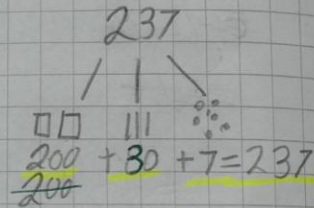 237
200 + 30 + 7 = 237
200